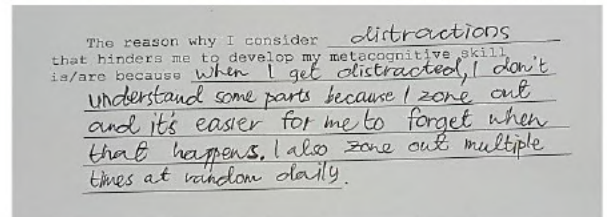 The reason why I consider distractions
that hinders me to develop my metacognitive skill
is/are because when I get distracted, I don't
understand some parts because I zone out
and it's easier for me to forget when
that happens. I also zone out multiple
times at random daily.